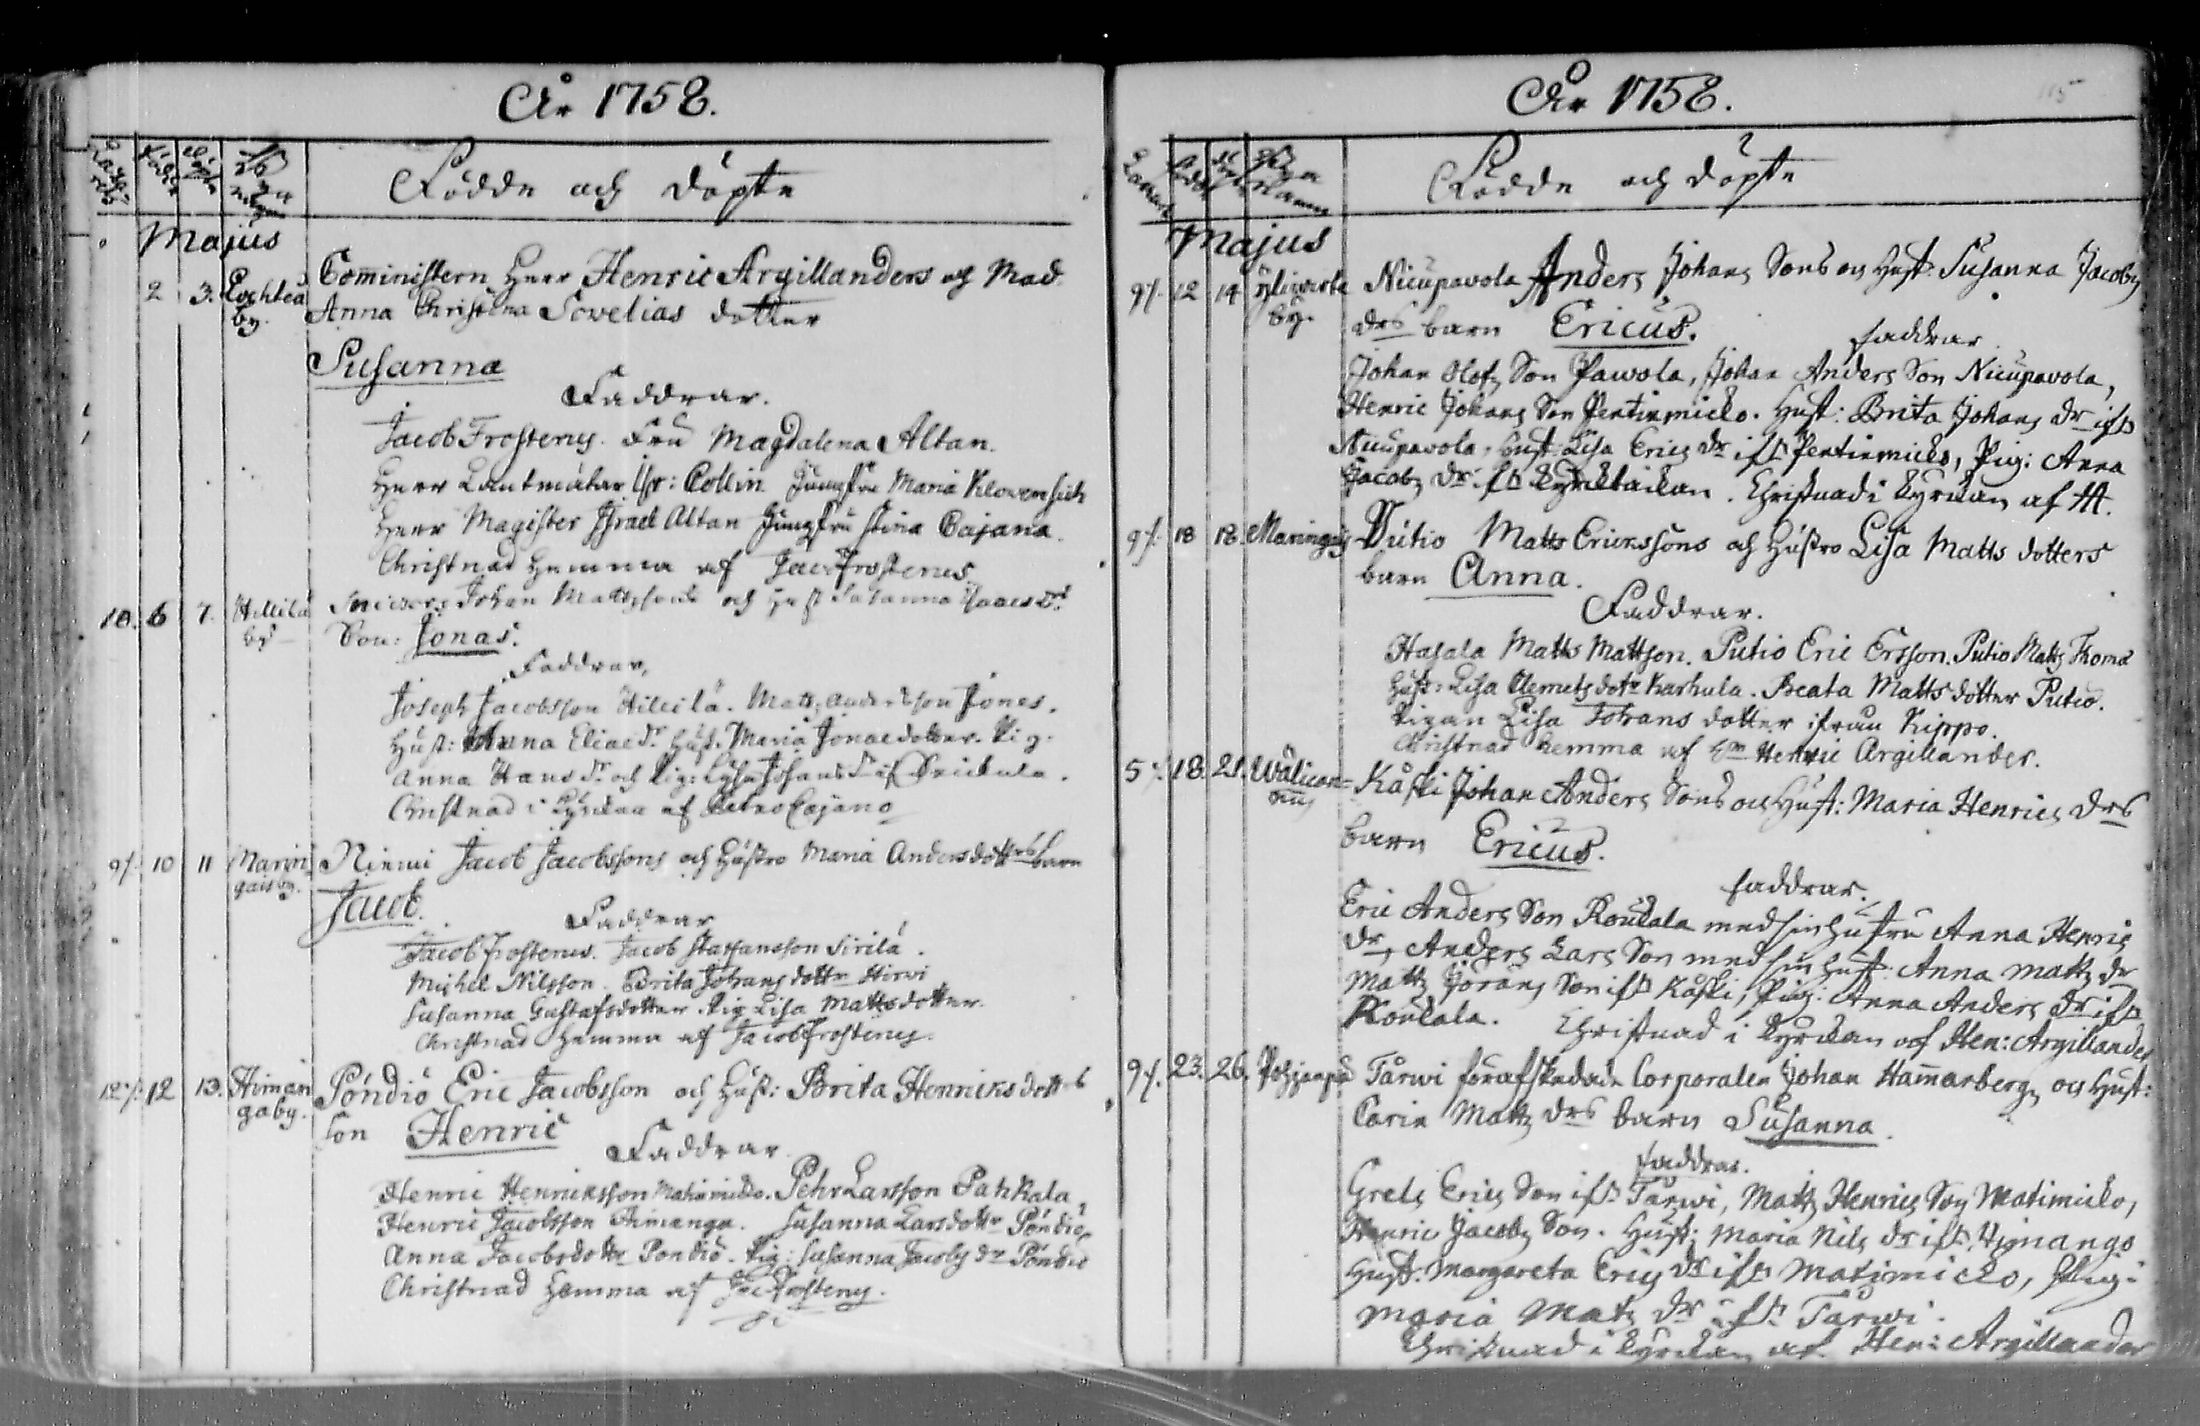 År 1758.
Födde och döpte
Majus
2 3. Lochteå Comministern Herr Henric Argillanders och Mad
by. Anna Christina Sovelias dotter
Susanna
Faddrar.
Jacob Frosterus. Fru Magdalena Altan.
Herr Lantmätar Collin Jungfru Maria
Herr Magister Israel Altan Jungfru Stina Cajana.
Christnad hemma af Jac Frosterus
10. 6 7. Hillilä Johan Mattssons och Hust Susanna
by Son: Jonas.
Faddrar,
Joseph Jacobsson Hillilä. Matts Andersson Jones.
Hust: Anna Elias dr Hust. Maria Jonae dotter. Pig.
Anna Hans dr och Pig: Johans
Christnad i Kyrkan af Petro Cajano
9/. 10 11 Marin Niemi Jacob Jacobssons och Hustro Maria Andersdotters barn
gais by. Jacob.
Faddrar
Jacob Frosterus. Jacob Staffansson Sirilä.
Michel Nilsson. Brita Johans dotter Hirvi
Susanna Gustafsdotter Pig Lisa Mattsdotter.
Christnad hemma af Jacob Frosterus.
12/. 12 13. Himan Pöndiö Eric Jacobsson och Hust: Brita Henricks dotters
ga by. son Henric
Faddrar
Henric Henricksson Matinmicko. Pehr Larsson Pahkala,
Henric Jacobsson Himanga. Susanna Larsdotter Pöndiö,
Anna Jacobsdotter Pöndiö. Pig: Susanna Jacobs dr Pöndiö
Christnad hemma af Jac Frosterus.
År 1758.
115
Födde och döpte
Majus
9/. 12 14 Ylivieska Nicupavola Anders Johans Sons och Hust: Susanna Jacobs
by. drs barn Ericus.
faddrar
Johan Olofs Son Pavola, Johan Anders Son Nicupavola,
Henric Johans Son Pentinmicko. Hust: Brita Johans dr ifrn
Nicupavola, Hust: Lisa Erics dr ifrn Pentinmicko, Pig: Anna
Jacobs dr ifrn. Christnad i Kyrkan af HA.
9/. 18 18. Maringais Putio Matts Erickssons och Hustro Lisa Matts dotters
barn Anna.
Faddrar.
Hasala Matts Mattson. Putio Eric Ersson. Putio Matts Thoms
Hust: Lisa Clemets dotr Karhula. Beata Matts dotter Putio.
Pigan Lisa Johans dotter ifrån Kippo.
Christnad hemma af Hrn Henric Argillander.
5/. 18. 21. Wälican= Kåski Johan Anders Sons och Hust: Maria Henrics drs
barn Ericus.
faddrar.
Eric Anders Son Roukala med sin hustru Anna Henrics
dr, Anders Lars Son med sin hust: Anna Matts dr
Matts Görans Son ifrn Kåski, Pig: Anna Anders dr ifrn
Roukala. Christnad i Kyrkan af Hen: Argillander
9/. 23. 26. Pohjanpä Tårwi förafskedade Corporalen Johan Hammarbergs och Hust:
Carin Matts drs barn Susanna.
faddrar.
Grels Erics Son ifrn Tårwi, Matts Henrics Son Matinmicko,
Henric Jacobs Son. Hust: Maria Nils dr ifrn Himango
Hust: Margareta Erics dr ifrn Matinmicko, Pig:
Maria Matts dr ifrn Tårwi.
Christnad i Kyrkan af Hen: Argillander